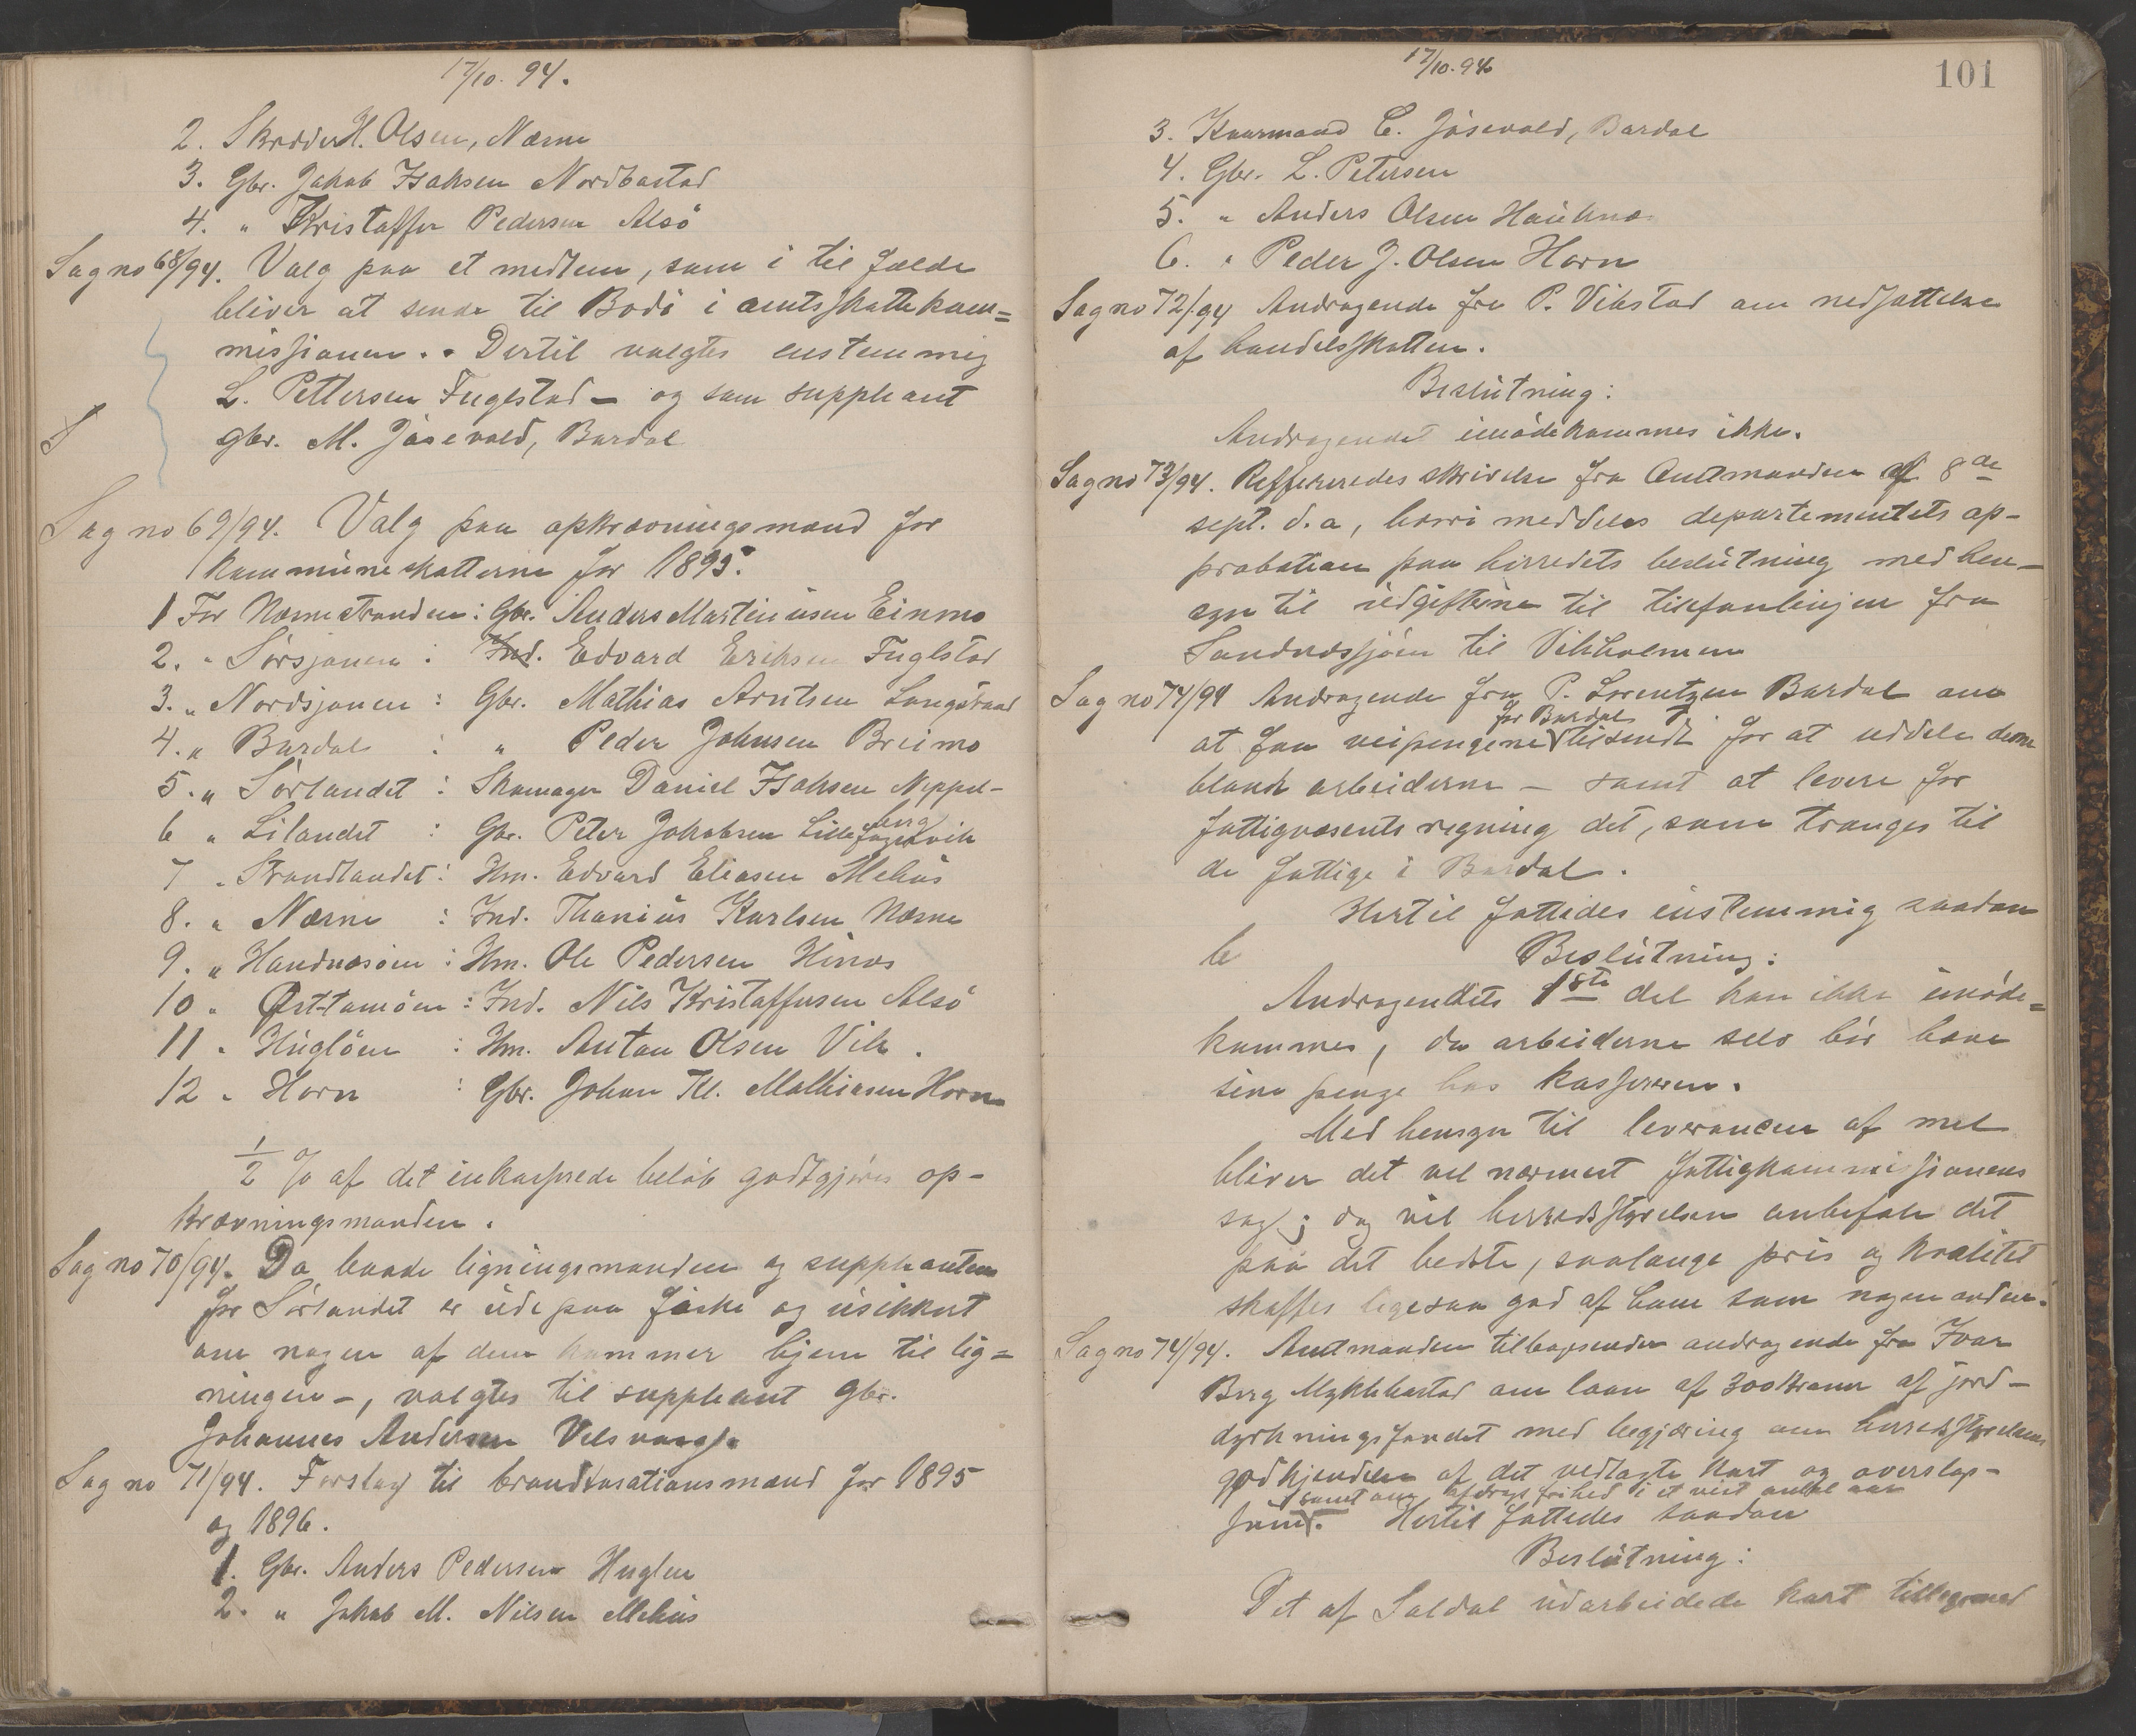 17/10. 94.
2. Skrædder H. Olsen, Næsne
3. Gbr. Jakob Isaksen Nordbostad
4. " Kristoffer Pedersen Alsö
Sag no 68/94. Valg paa et medlem, som i til fælde
bliver at sende til Bodö i amtsskattekom=
missionen. - Dertil valgtes enstemmig
L. Pettersen Fuglstad - og som suppleant
gbr. M. Jösevold, Bardal
Sag no 69/94. Valg paa opkrævningsmænd for
kommuneskatterne for 1895.
1 For Næsnestranden: Gbr. Anders Martinusen Einmo
2. " Sörsjonen : Ind. Edvard Eriksen Fuglstad
3. " Nordsjonen : Gbr. Mathias Arntsen Langstrand
4. " Bardal : " Peder Johnsen Breimo
5. " Sörlandet : Skomager Daniel Isaksen Neppel-
berg
6 " Lilandet : Gbr. Peter Jakobsen Lille fagervik
7 " Strandlandet: Hm. Edvard Eliasen Mehus
8. " Næsne : Ind. Thonius Karlsen Næsne
9. " Handnæsöen : Hm. Ole Pedersen Hinæs
10 " Øst-tomöen : Ind. Nils Kristoffersen Alsö
11 " Huglöen : Hm. Anton Olsen Vik.
12 " Horn : Gbr. Johan Kl. Mathiasen Horn
1/2 % af det inkasserede belöb godtgjöres op-
krævningsmanden.
Sag no 70/94. Da baade ligningsmanden og suppleanten
for Sörlandet er ude paa fiske og usikkert
om nogen af dem kommer hjem til lig=
ningen -, valgtes til suppleant gbr.
Johannes Andersen Velsvaag.
Sag no 71/94. Forslag til brandtaxationsmænd for 1895
og 1896.
1. Gbr. Anders Pedersen Huglen
2. " Jakob M. Nilsen Mehus
17/10. 94
101
3. Kaarmand C. Jösevold, Bardal
4. Gbr. L. Petersen
5. " Anders Olsen Hauknæ
6. " Peder J. Olsen Horn
Sag no 72/94 Andragende fra P. Vikstad om nedsættelse
af handelsskatten.
Beslutning:
Andragendet imödekommes ikke.
Sag no 73/94. Reffereredes skrivelse fra Amtmanden af 8de
sept. d.a, hvori meddeles departementets ap-
probation paa herredets beslutning med hen-
syn til udgifterne til telefonlinjen fra
Sandnæssjöen til Vikholmen
Sag no 74/94 Andragende fra P. Lorentzen Bardal om
for Bardal
at faa veipengene tilsendt for at uddele dem
blandt arbeiderne - samt at levere for
fattigvæsents regning det, som trænges til
de fattige i Bardal.
Hertil fattedes enstemmig saadan
Beslutning:
Andragendets 1ste del kan ikke imöde=
kommes, da arbeiderne selv bör hæve
sine penge hos kassereren.
Med hensyn til leverancen af mel
bliver det vel nærmest fattigkommissionens
sag; dog vil herredsstyrelsen anbefale det
paa det bedste, saalænge pris og kvalitet
skaffes ligesaa god af ham som nogen anden.
Sag no 74/94. Amtmanden tilbagesender andragende fra Ivar
Berg Myklebostad om laan af 300 kroner af jord-
dyrkningsfondet med begjæring om herredsstyrelsens
godkjendelse af det vedlagte kart og overslag-
samt om afdragsfrihed i et vist antal aar
. Hertil fattedes saadan
Beslutning:
Det af Saldal udarbeidede kart tillegemed